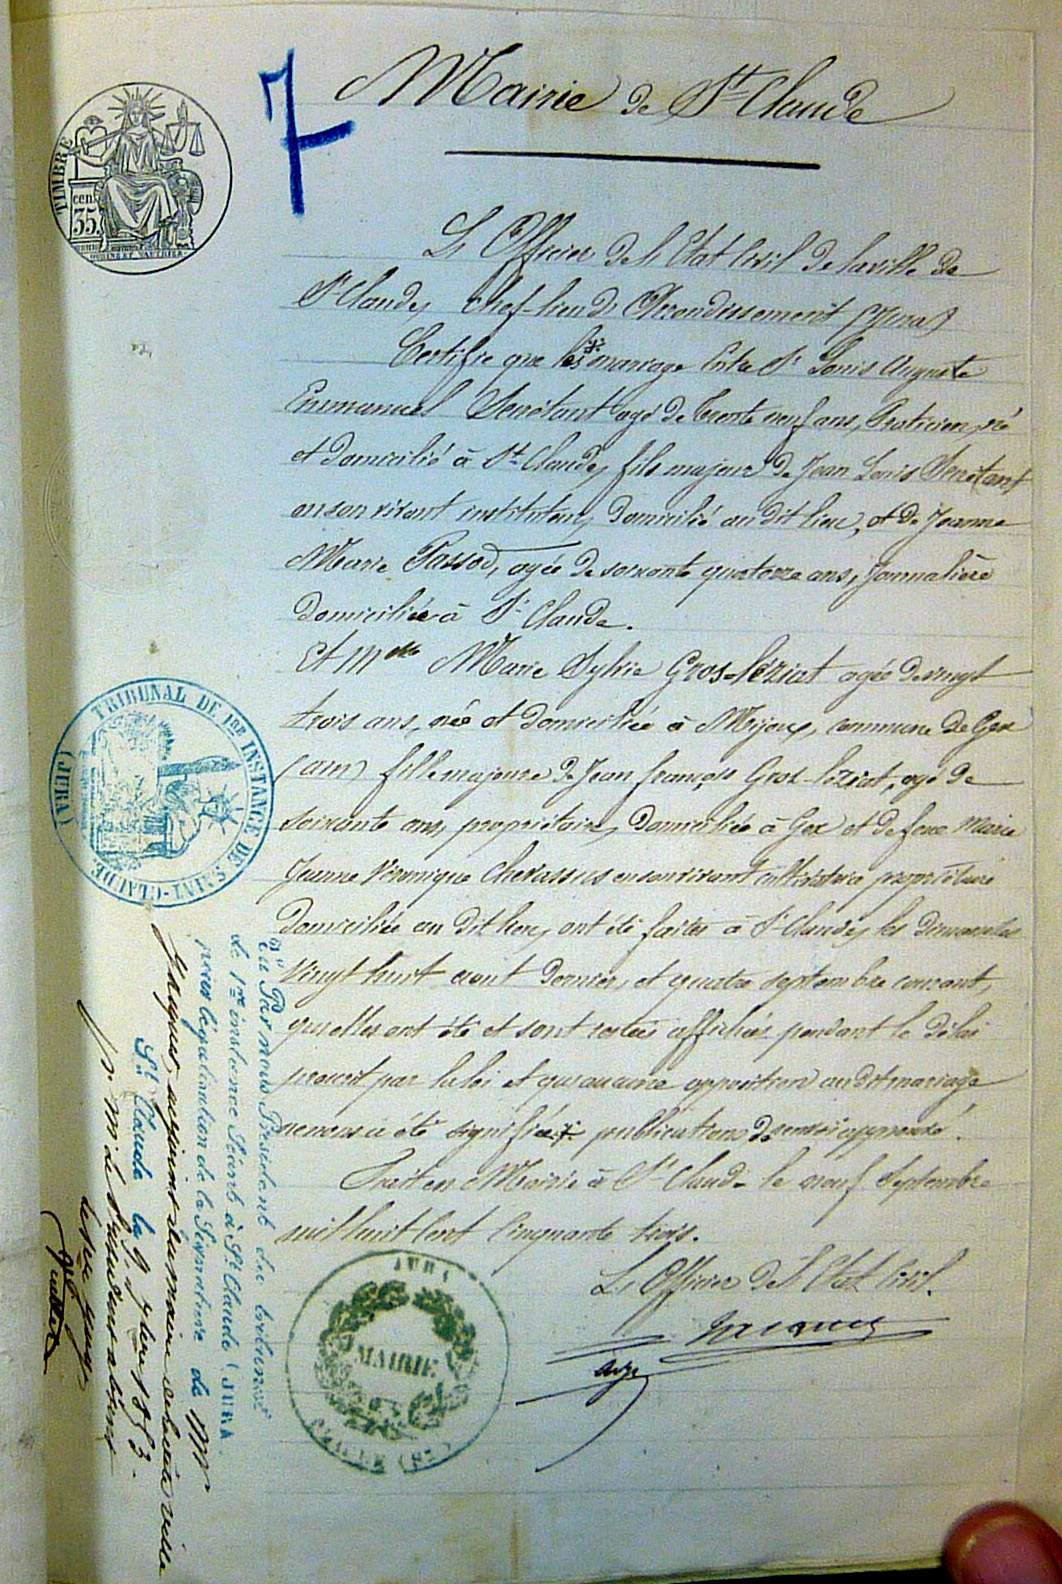 7
Mairie de St Claude
TIMBRE
cent.
35.
L'Officier de l'Etat Civil de la ville de
St Claude, chef-lieu d'Arrondissement (Jura)
Certifie que les * mariage Entre Sr Louis Auguste
Emmanuel Secrétant agé de trente neuf ans, Praticien, né
et domicilié à St Claude, fils majeur de Jean Louis Secrétant
en son vivant instituteur, domicilié au dit lieu, et de Jeanne
Marie Passod, agée de soixante quatorze ans, Journalière
domiciliée à St Claude.
Et Mlle Marie Sylvie Gros-lézriat agée de vingt
trois ans, née et domiciliée à Mijoux, commune de Gex
(ain) fille majeure de Jean françois Gros-lézriat, agé de
soixante ans, propriétaire, domicilié à Gex et de feue Marie
Jeanne Véronique Chevassus en son vivant cultivatrice propriétaire
domiciliée au dit lieu, ont été faites à St Claude, les dimanches
Vingt huit aout dernier, et quatre septembre courant,
qu'elles ont été et sont restées affichées pendant le délai
prescrit par la loi et qu'aucune opposition audit mariage
ne nous a été signifiée * publications de renvoi approuvé.
Fait en Mairie à St Claude le neuf Septembre
mil huit Cent Cinquante trois.
L'Officier de l'Etat Civil.
adjt
JURA
MAIRIE
TRIBUNAL DE 1ERE INSTANCE DE SAINT-CLAUDE
(JURA)
Vu Par nous Président du tribunal
de 1ère instance Séant à St Claude (JURA
pour légalisation de la Signature de Mr
Jacquet adjoint au maire de cette ville
St Claude le 9 7bre 1853.
pr Mr le Président absent
le juge